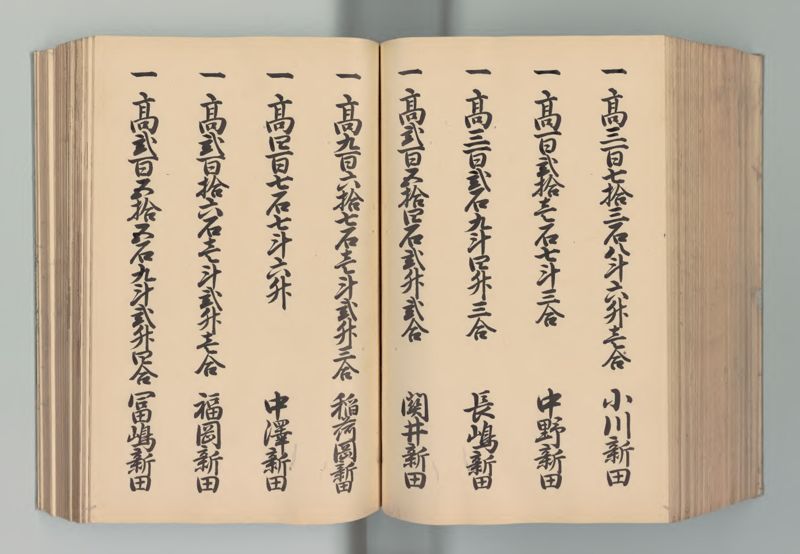 一 高三百七拾三石八斗六升壱合 小川新田
一 高百弐拾壱石七斗三合 中野新田
一 高三百弐石九斗四升三合 長嶋新田
一 高弐百五拾四石弐升弐合 関井新田
一 高九百六拾七石壱斗弐升三合 稲荷岡新田
一 高四百七石七斗六升 中澤新田
一 高弐百拾六石壱斗弐升壱合 福岡新田
一 高弐百五拾五石九斗弐升四合 冨嶋新田